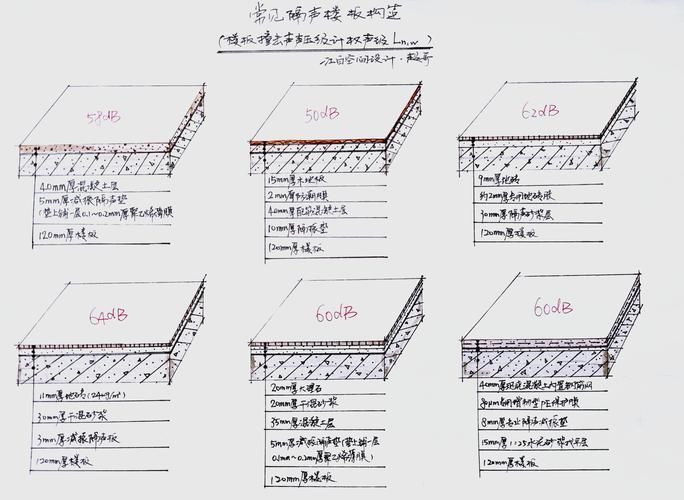 常见隔声楼板构造
(楼板撞击声声压级设计权声级 Ln,w)
江白空间设计·
58dB
40mm厚混凝土层
5mm厚减振隔声垫
(垫上铺一层0.1~0.2mm厚聚乙烯薄膜)
120mm厚楼板
50dB
15mm厚木地板
2mm厚防潮膜
40mm厚配筋混凝土层
10mm厚隔振垫
120mm厚楼板
62dB
9mm厚地砖
约2mm厚专用地砖胶
30mm厚隔声砂浆层
120mm厚楼板
64dB
11mm厚地砖(24kg/m²)
30mm厚干混砂浆
3mm厚减振隔声板
120mm厚楼板
60dB
20mm厚大理石
20mm厚干混砂浆
35mm厚混凝土层
5mm厚减振隔声垫(垫上铺一层
0.1mm~0.2mm厚聚乙烯薄膜)
120mm厚楼板
60dB
40mm厚现浇混凝土内置钢筋网
80μm专用增韧型PE保护膜
8mm专业隔声减振垫
15mm厚1:2.5水泥砂浆找平层
120mm厚楼板